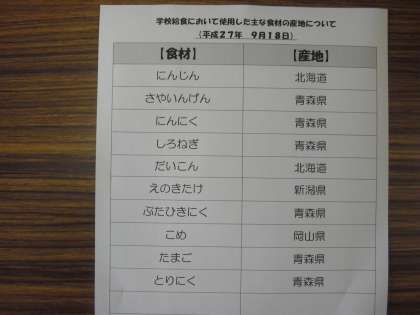 学校給食において使用した主な食材の産地について
(平成27年 9月18日)
【食材】 【産地】
にんじん 北海道
さやいんげん 青森県
にんにく 青森県
しろねぎ 青森県
だいこん 北海道
えのきたけ 新潟県
ぶたひきにく 青森県
こめ 岡山県
たまご 青森県
とりにく 青森県